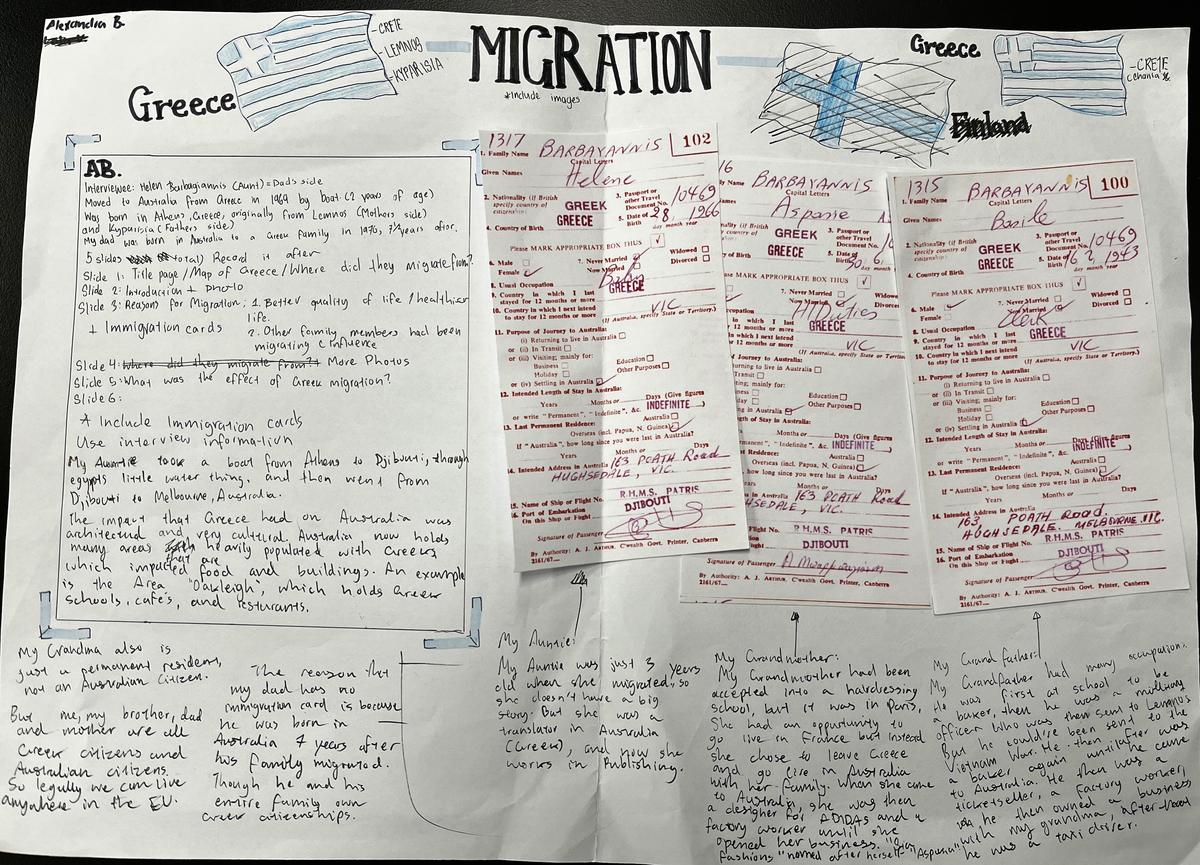 Alexandra B.
Greece
-CRETE
-LEMNOS
-KYPARISIA
MIGRATION
*Include images
Greece
-CRETE
Chania
Finland
AB.
Interviewee: Helen Barbagiannis (Aunt) = Dad's side
Moved to Australia from Greece in 1969 by boat (2 years of age)
Was born in Athens, Greece, originally from Lemnos (Mothers side)
and Kyparisia (Fathers side)
My dad was born in Australia to a Greek family in 1976, 7½ years after.
5 slides total) Record it after
Slide 1: Title page / Map of Greece / Where did they migrate from?
Slide 2: Introduction + photo
Slide 3: Reason for Migration: 1. Better quality of life / healthier
life.
+ Immigration cards
2. Other family members had been
migrating & influence
Slide 4: Where did they migrate from? + More Photos
Slide 5: What was the effect of Greek migration?
Slide 6:
* Include Immigration cards
Use interview information
My Auntie took a boat from Athens to Djibouti, though
egypts little water thing. and then went from
Djibouti to Melbourne, Australia.
The impact that Greece had on Australia was
architectural and very cultural. Australia now holds
many areas that are heavily populated with Greeks
which impacted food and buildings. An example
is the Area "Oakleigh", which holds Greek
schools, cafe's, and resturants.
1317
102
1. Family Name BARBAYANNIS
Capital Letters
Given Names Helene
2. Nationality (if British
specify country of
citizenship)
GREEK
3. Passport or
other Travel
Document No. 10469
4. Country of Birth GREECE
5. Date of
Birth 28, 1966
day month year
Please MARK APPROPRIATE BOX THUS ✓
6. Male
Female
7. Never Married
Now Married
Widowed
Divorced
8. Usual Occupation
9. Country in which I last
stayed for 12 months or more
GREECE
10. In which I next intend
to stay for 12 months or more
VIC
(If Australia, specify State or Territory)
11. Purpose of Journey to Australia:
(i) Returning to live in Australia
or (ii) In Transit
or (iii) Visiting; mainly for:
Business
Holiday
Education
Other Purposes
or (iv) Settling in Australia
12. Intended Length of Stay in Australia:
Years Months or Days (Give figures
or write "Permanent", "Indefinite", &c. INDEFINITE)
13. Last Permanent Residence: Australia
Overseas (incl. Papua, N. Guinea)
If "Australia", how long since you were last in Australia?
Years Months or Days
14. Intended Address in Australia 163 POATH Road
HUGHSEDALE, VIC.
15. Name of Ship or Flight No. R.H.M.S. PATRIS
16. Port of Embarkation
On this Ship or Flight
DJIBOUTI
Signature of Passenger
By Authority: A. J. ARTHUR, C'wealth Govt. Printer, Canberra
16
BARBAYANNIS
Capital Letters
Aspasie
GREEK
3. Passport or
other Travel
Document No.
GREECE
5. Date of
Birth
MARK APPROPRIATE BOX THUS ✓
7. Never Married
Now Married
H/Duties
GREECE
VIC
(If Australia, specify State or Territory)
Education
Other Purposes
INDEFINITE
163 POATH Road
HUGHSEDALE, VIC.
R.H.M.S. PATRIS
DJIBOUTI
Signature of Passenger
By Authority: A. J. ARTHUR, C'wealth Govt. Printer, Canberra
2161/67
1315
100
1. Family Name BARBAYANNIS
Capital Letters
Given Names Basile
2. Nationality (if British
specify country of
citizenship)
GREEK
3. Passport or
other Travel
Document No. 10469
4. Country of Birth GREECE
5. Date of
Birth 1943
day month year
Please MARK APPROPRIATE BOX THUS ✓
6. Male
Female
7. Never Married
Now Married
Widowed
Divorced
8. Usual Occupation Clerk
9. Country in which I last
stayed for 12 months or more
GREECE
10. In which I next intend
to stay for 12 months or more
VIC
(If Australia, specify State or Territory.)
11. Purpose of Journey to Australia:
(i) Returning to live in Australia
or (ii) In Transit
or (iii) Visiting; mainly for:
Business
Holiday
Education
Other Purposes
or (iv) Settling in Australia
12. Intended Length of Stay in Australia:
Years Months or Days (Give figures
or write "Permanent", "Indefinite", &c. INDEFINITE)
13. Last Permanent Residence: Australia
Overseas (incl. Papua, N. Guinea)
If "Australia", how long since you were last in Australia?
Years Months or Days
14. Intended Address in Australia
163 POATH ROAD.
HUGHSEDALE. MELBOURNE VIC.
15. Name of Ship or Flight No. R.H.M.S. PATRIS
16. Port of Embarkation
On this Ship or Flight
DJIBOUTI
Signature of Passenger
By Authority: A. J. ARTHUR, C'wealth Govt. Printer, Canberra
2161/67
My Grandma also is
just a permanent resident,
not an Australian Citizen.
But me, my brother, dad
and mother are all
Greek citizens and
Australian citizens.
So legally we can live
anywhere in the EU.
The reason that
my dad has no
immigration card is because
he was born in
Australia 7 years after
his family migrated.
Though he and his
entire family own
Greek citizenships.
My Auntie:
My Auntie was just 3 years
old when she migrated, so
she doesn't have a big
story. But she was a
translator in Australia
(Greek), and now she
works in Publishing.
My Grandmother:
My Grandmother had been
accepted into a hairdressing
school, but it was in Paris,
She had an opportunity to
go live in France but instead
she chose to leave Greece
and go live in Australia
with her family. When she came
to Australia, she was then
a designer for ADIDAS and a
factory worker until she
opened her business.
Fashions" named after herself "Aspasia"
My Grandfather:
My Grandfather had many occupation.
He was first at school to be
a baker, then he was a military
officer who was then sent to Lemnos
But he could've been sent to the
Vietnam War. He then after was
a baker, again until he came
to Australia. He then was a
ticketseller, a factory worker,
he then owned a business
with my grandma, after that
he was a taxi driver.